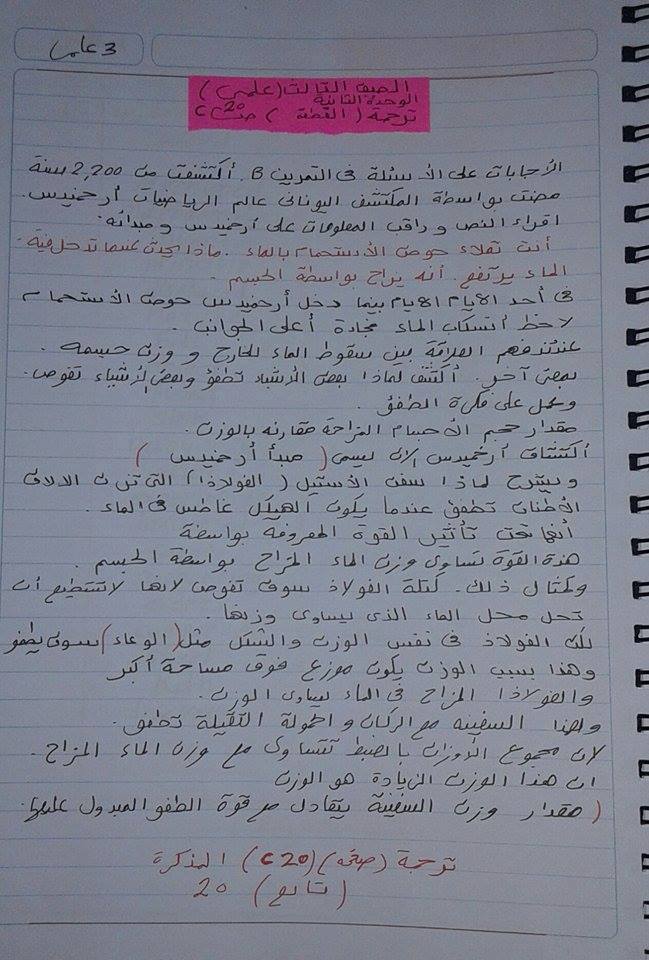 3 علمي
الصف الثالث (علمي)
الوحدة الثانية
ترجمة (القطعة) ص C20
الأجابات على الأسئلة في التمرين B. أكتشفت من 2,200 سنة
مضت بواسطة المكتشف اليوناني عالم الرياضيات أرخميدس.
اقراء النص و راقب المعلومات على أرخميدس و مبدائه.
أنت تملاء حوض الأستحمام بالماء. ماذا يحدث عندما تدخل فيه
الماء يرتفع. أنه يزاح بواسطة الجسم.
في أحد الأيام الايام بينما دخل أرخميدس حوض الأستحمام
لاحظ أنسكاب الماء بحافة أعلى الجوانب.
عندئذ فهم العلاقة بين سقوط الماء للخارج و وزن جسمه.
بمعنى آخر. أكتشف لماذا بعض الأشياء تطفو وبعض الأشياء تغوص.
وعمل على فكرة الطفو.
مقدار حجم الأجسام المزاحة مقارنه بالوزن.
أكتشاف أرخميدس الان يسمى (مبدأ أرخميدس)
ويشرح لماذا سفن الأستيل (الفولاذ) التي تزن الالاف
الأطنان تطفو عندما يكون الهيكل غاطس في الماء.
أنها تحت تأثير القوة المعروفة بواسطة
هذة القوة تساوي وزن الماء المزاح بواسطة الجسم.
وكمثال ذلك. كتلة الفولاذ سوف تغوص لانها لاتستطيع أن
تحل محل الماء الذي يساوي وزنها.
لكن الفولاذ في نفس الوزن والشكل مثل (الوعاء) سوف يطفو
وهذا بسبب الوزن يكون موزع فوق مساحة أكبر
والفولاذ المزاح في الماء يساوي الوزن.
ولهذا السفينه مع الركاب و الحمولة الثقيلة تطفو.
لان مجموع الأوزان بالضبط تتساوى مع وزن الماء المزاح.
ان هذا الوزن الزيادة هو الوزن
(مقدار وزن السفينة يتعادل مع قوة الطفو المبذول عليها.
ترجمة (صفحه) (C20) المذكرة
(تابع) 20